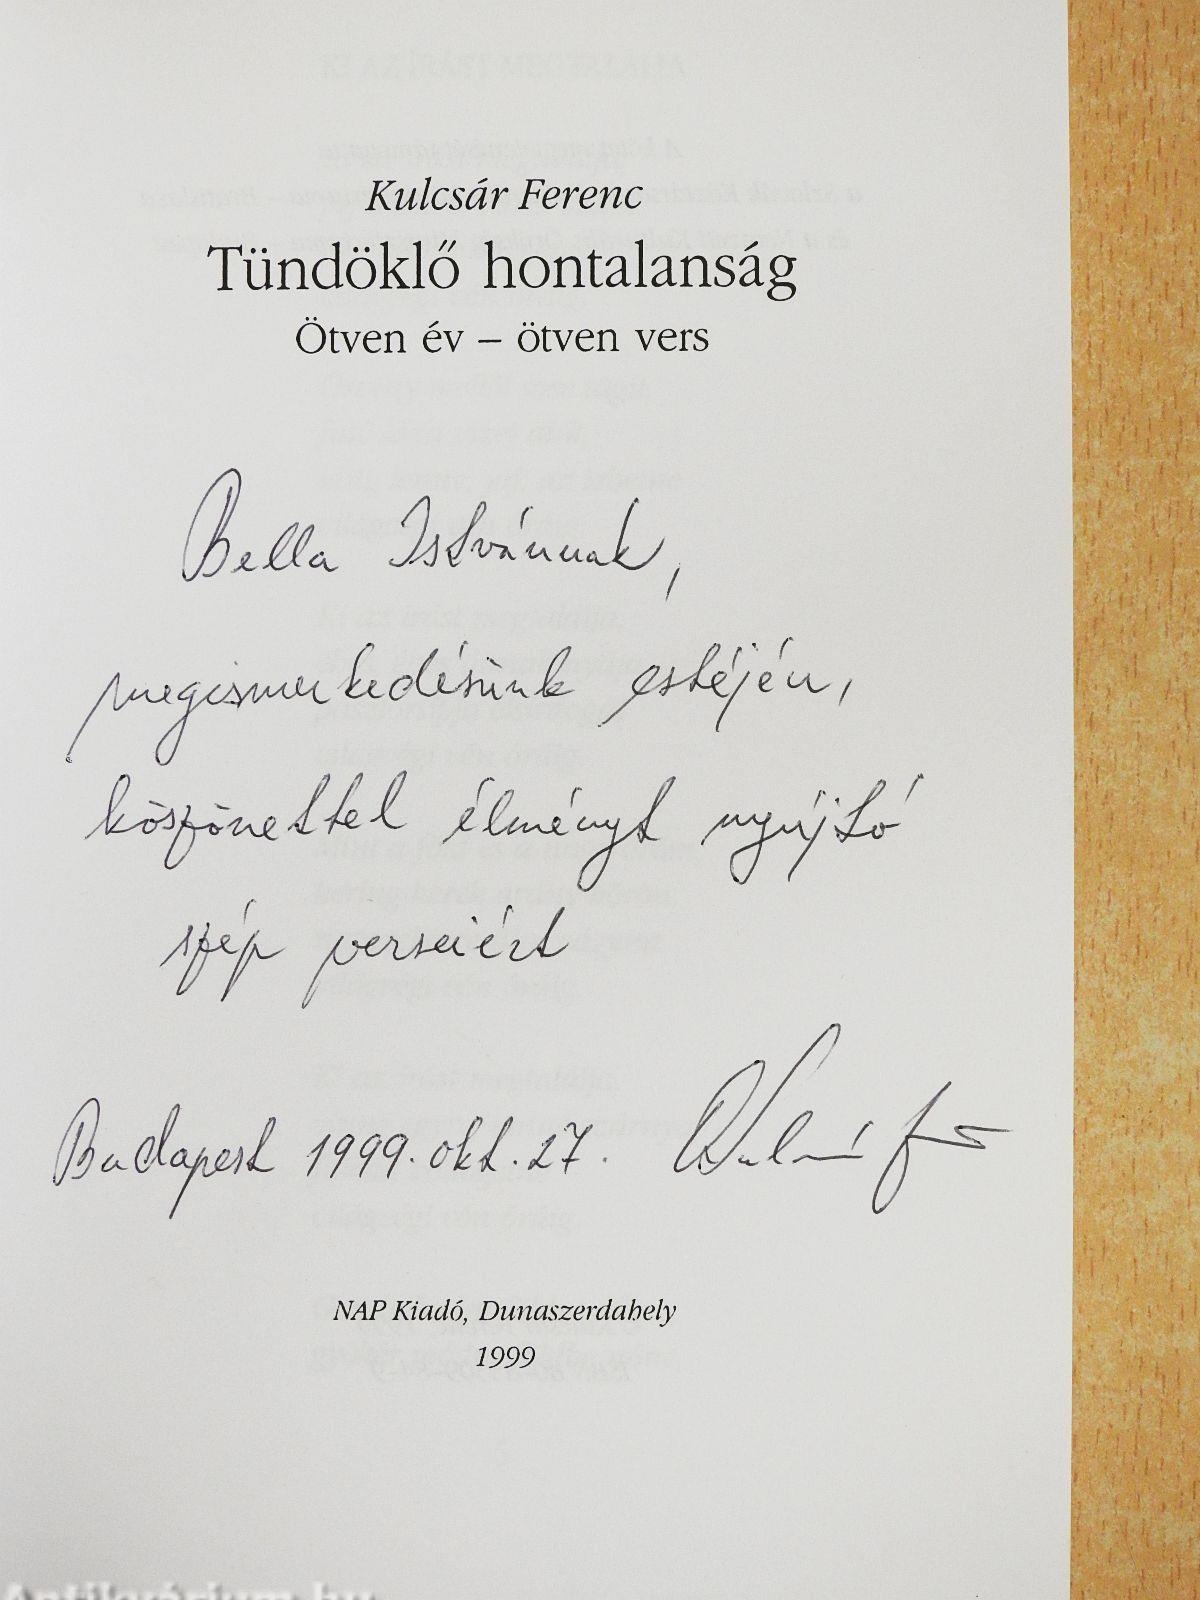 Kulcsár Ferenc
Tündöklő hontalanság
Ötven év – ötven vers
Bella Istvánnak,
megismerkedésünk estéjén,
köszönettel élményt nyújtó
szép verseiért
Budapest 1999. okt. 27.
NAP Kiadó, Dunaszerdahely
1999
Antikvárium.hu